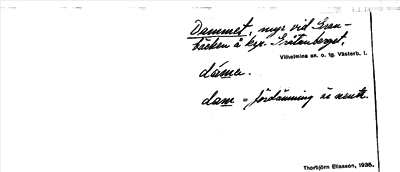 Dammet, myr vid Gran-
bäcken å kpr. Gråtanberget.
Vilhelmina sn. o. tg. Västerb. l.
dáma.
dam = fördämning är neutr.
Thorbjörn Eliasson, 1935.